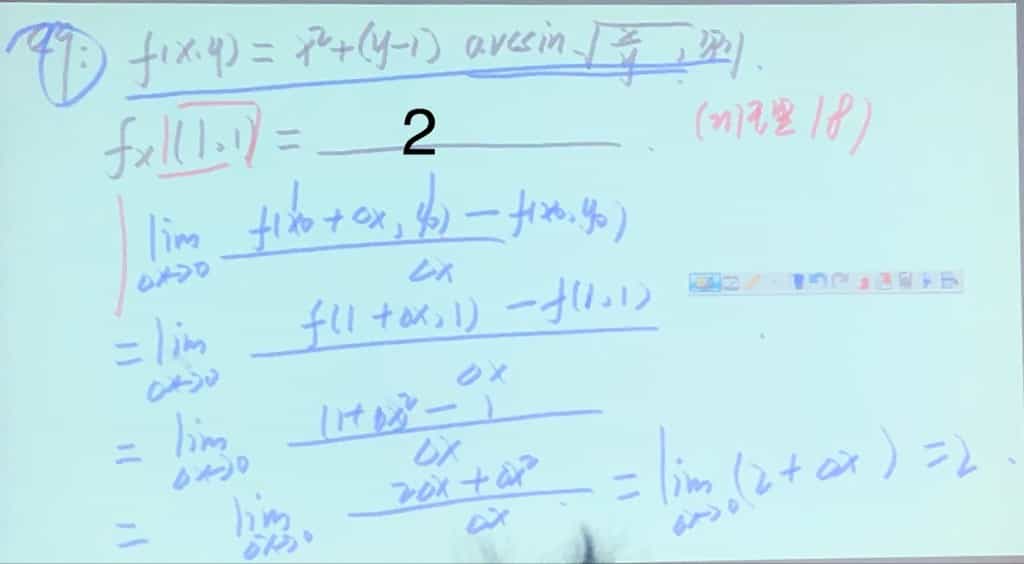 49: f(x,y) = x²+(y-1) arcsin √(x/y), 则
fx|(1,1) = 2 . (n)毛型18)
lim Δx→0 f(x₀+Δx, y₀) - f(x₀,y₀) / Δx
= lim Δx→0 f(1+Δx,1) - f(1,1) / Δx
= lim Δx→0 (1+Δx)² - 1 / Δx
= lim Δx→0 2Δx+Δx² / Δx = lim Δx→0 (2+Δx) = 2 .